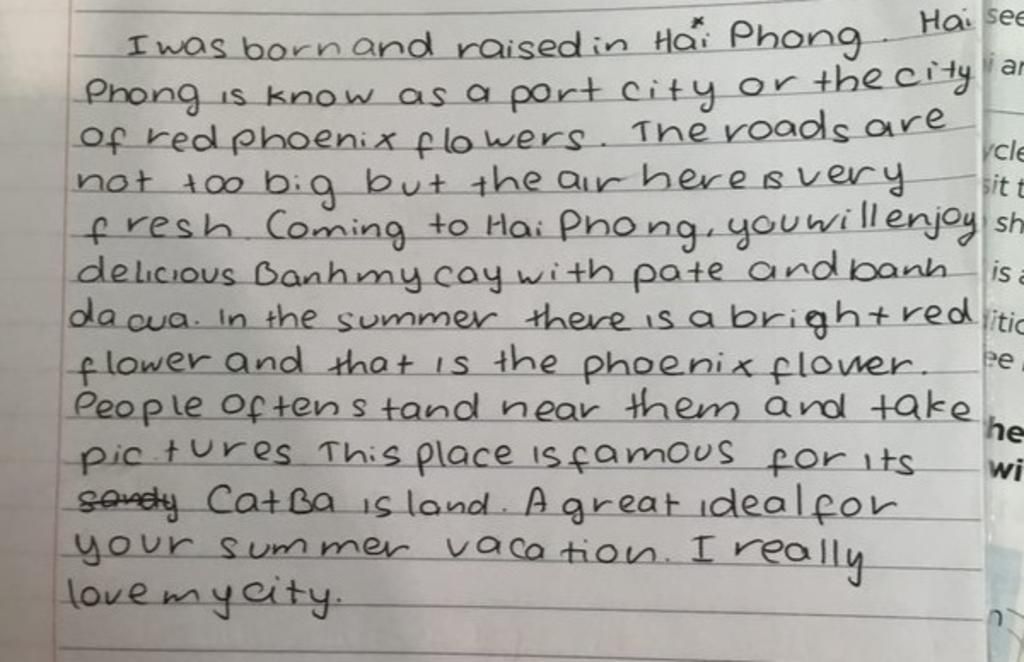 I was born and raised in Hải Phong. Hai
Phong is know as a port city or the city
of red phoenix flowers. The roads are
not too big but the air here is very
fresh. Coming to Hai Phong, you will enjoy
delicious Banh my cay with pate and banh
da cua. In the summer there is a bright red
flower and that is the phoenix flower.
People often stand near them and take
pictures This place is famous for its
sandy Cat Ba island. A great ideal for
your summer vacation. I really
love my city.
see
i ar
ycle
sit t
sh
is a
litic
ee
he
wi
n